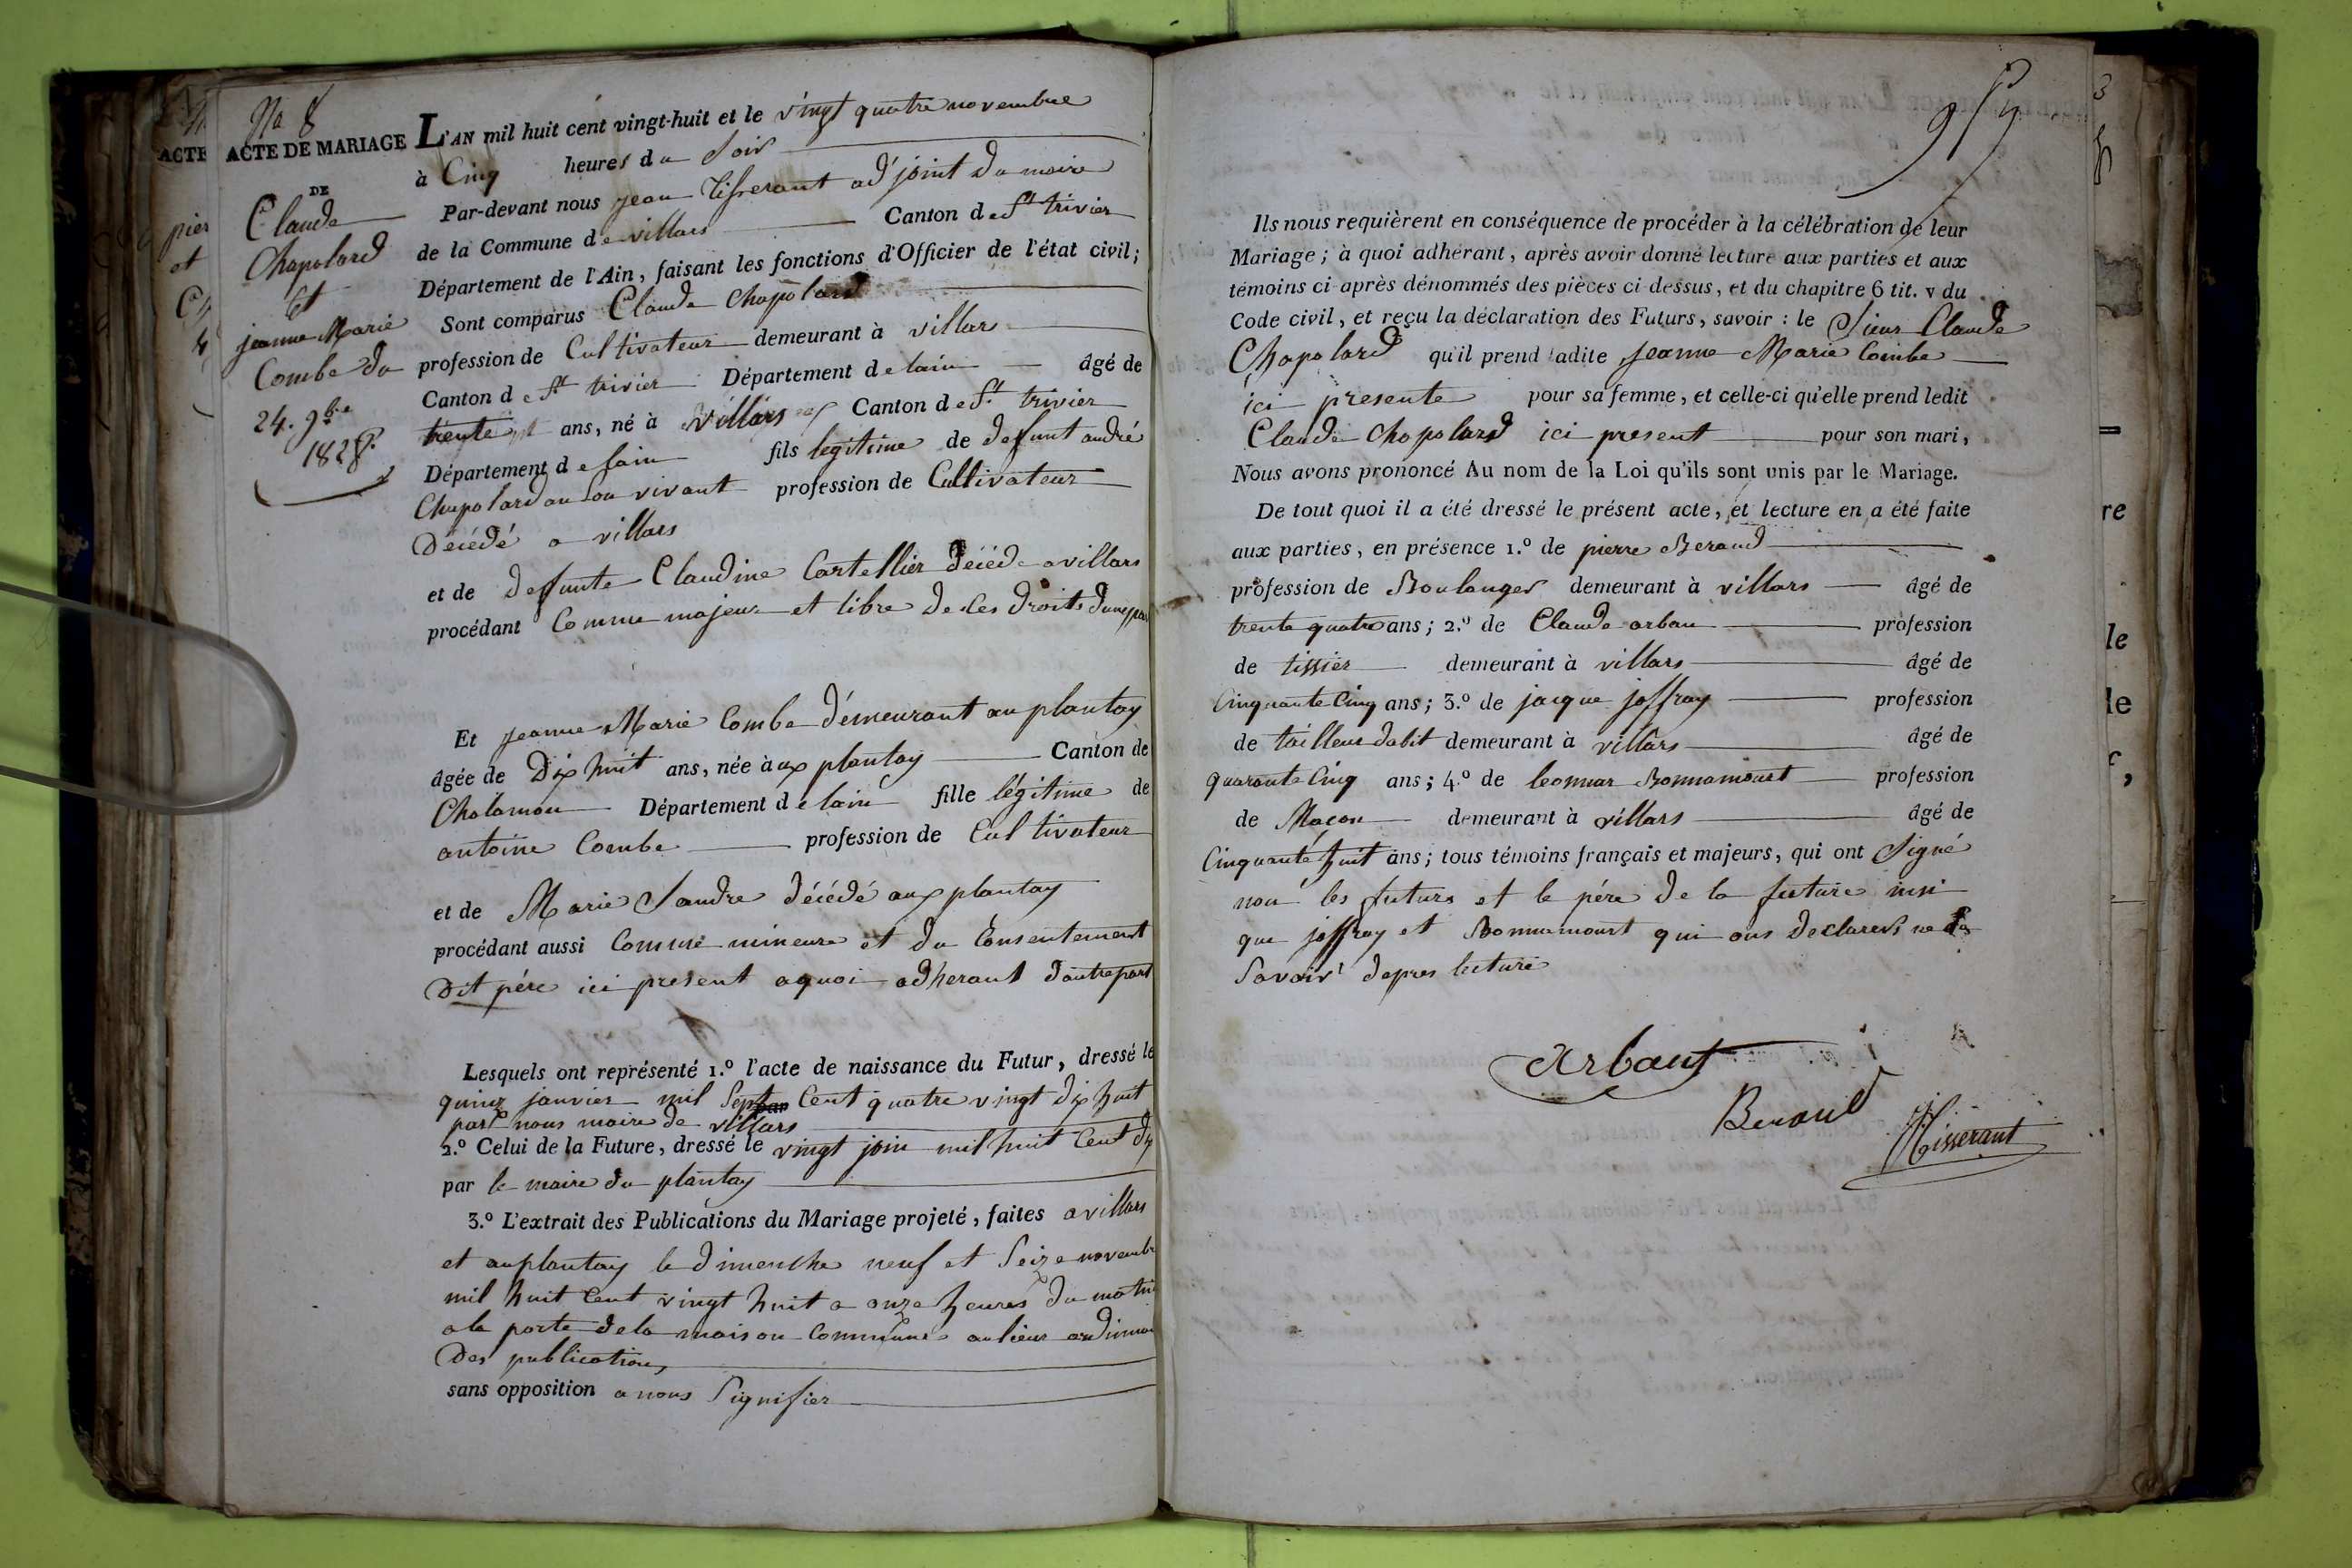 No 8
ACTE DE MARIAGE
DE
Claude
Chapolard
Et
jeanne Marie
Combe du
24. 9bre
1828.
L'AN mil huit cent vingt-huit et le vingt quatre novembre
à Cinq heures du Soir
Par-devant nous jean tisserant ad'joint du maire
de la Commune de villars Canton de St trivier
Département de l'Ain, faisant les fonctions d'Officier de l'état civil;
Sont comparus Claude Chapolard
profession de Cultivateur demeurant à villars
Canton de St trivier Département de lain âgé de
trente ans, né à villars Canton de St trivier
Département de lain fils legitime de defunt andré
Chapolard au Son vivant profession de Cultivateur
Décédé a villars
et de deffunte Claudine Cartellier décéde a villars
procédant Comme majeur et libre de Ses droits dune par
Et jeanne Marie Combe démeurant au plantay
âgée de Dix huit ans, née à aux plantay Canton de
Chalamon Département de lain fille légitime de
antoine Combe profession de Cultivateur
et de Marie Sandre décédé aux plantay
procédant aussi Comme mineure et du Consentement
Dit pére ici present aquoi adherant dautrepart
Lesquels ont représenté 1.º l'acte de naissance du Futur, dressé le
quinz janvier mil Sept Cent quatre vingt dix huit
par nous maire de villars
2.º Celui de la Future, dressé le vingt join mil huit Cent dix
par le maire du plantay
3.º L'extrait des Publications du Mariage projeté, faites a villars
et au plantay le dimenche neuf et Seize novembr
mil huit Cent vingt huit a onze heures du matin
a la porte de la maison Commune au lieux ordinai
Des publications
sans opposition a nous Signifier
Ils nous requièrent en conséquence de procéder à la célébration de leur
Mariage; à quoi adhérant, après avoir donné lecture aux parties et aux
témoins ci-après dénommés des pièces ci-dessus, et du chapitre 6 tit. v du
Code civil, et reçu la déclaration des Futurs, savoir : le Sieur Claude
Chapolard qu'il prend ladite jeanne Marie Combe
ici presente pour sa femme, et celle-ci qu'elle prend ledit
Claude chapolard ici present pour son mari,
Nous avons prononcé Au nom de la Loi qu'ils sont unis par le Mariage.
De tout quoi il a été dressé le présent acte, et lecture en a été faite
aux parties, en présence 1.º de pierre Beraud
profession de Boulanger demeurant à villars âgé de
trente quatre ans; 2.º de Claude arban profession
de tissier demeurant à villars âgé de
Cinquante Cinq ans; 3.º de jacque joffray profession
de tailleur dabit demeurant à villars âgé de
quarante Cinq ans; 4.º de leonnar Bonnamourt profession
de Maçon demeurant à villars âgé de
Cinquante huit ans; tous témoins français et majeurs, qui ont Signé
non les futurs et le pére de la future insi
que joffray et Bonnamourt qui ons declarers ne
Savoir depres lecture
Arbant
Beraud
Tisserant